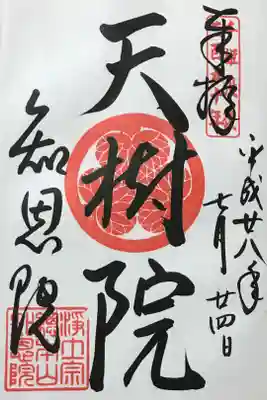 奉拝
平成廿八年
七月廿四日
天樹院
知恩院
浄土宗
總本山
知恩院